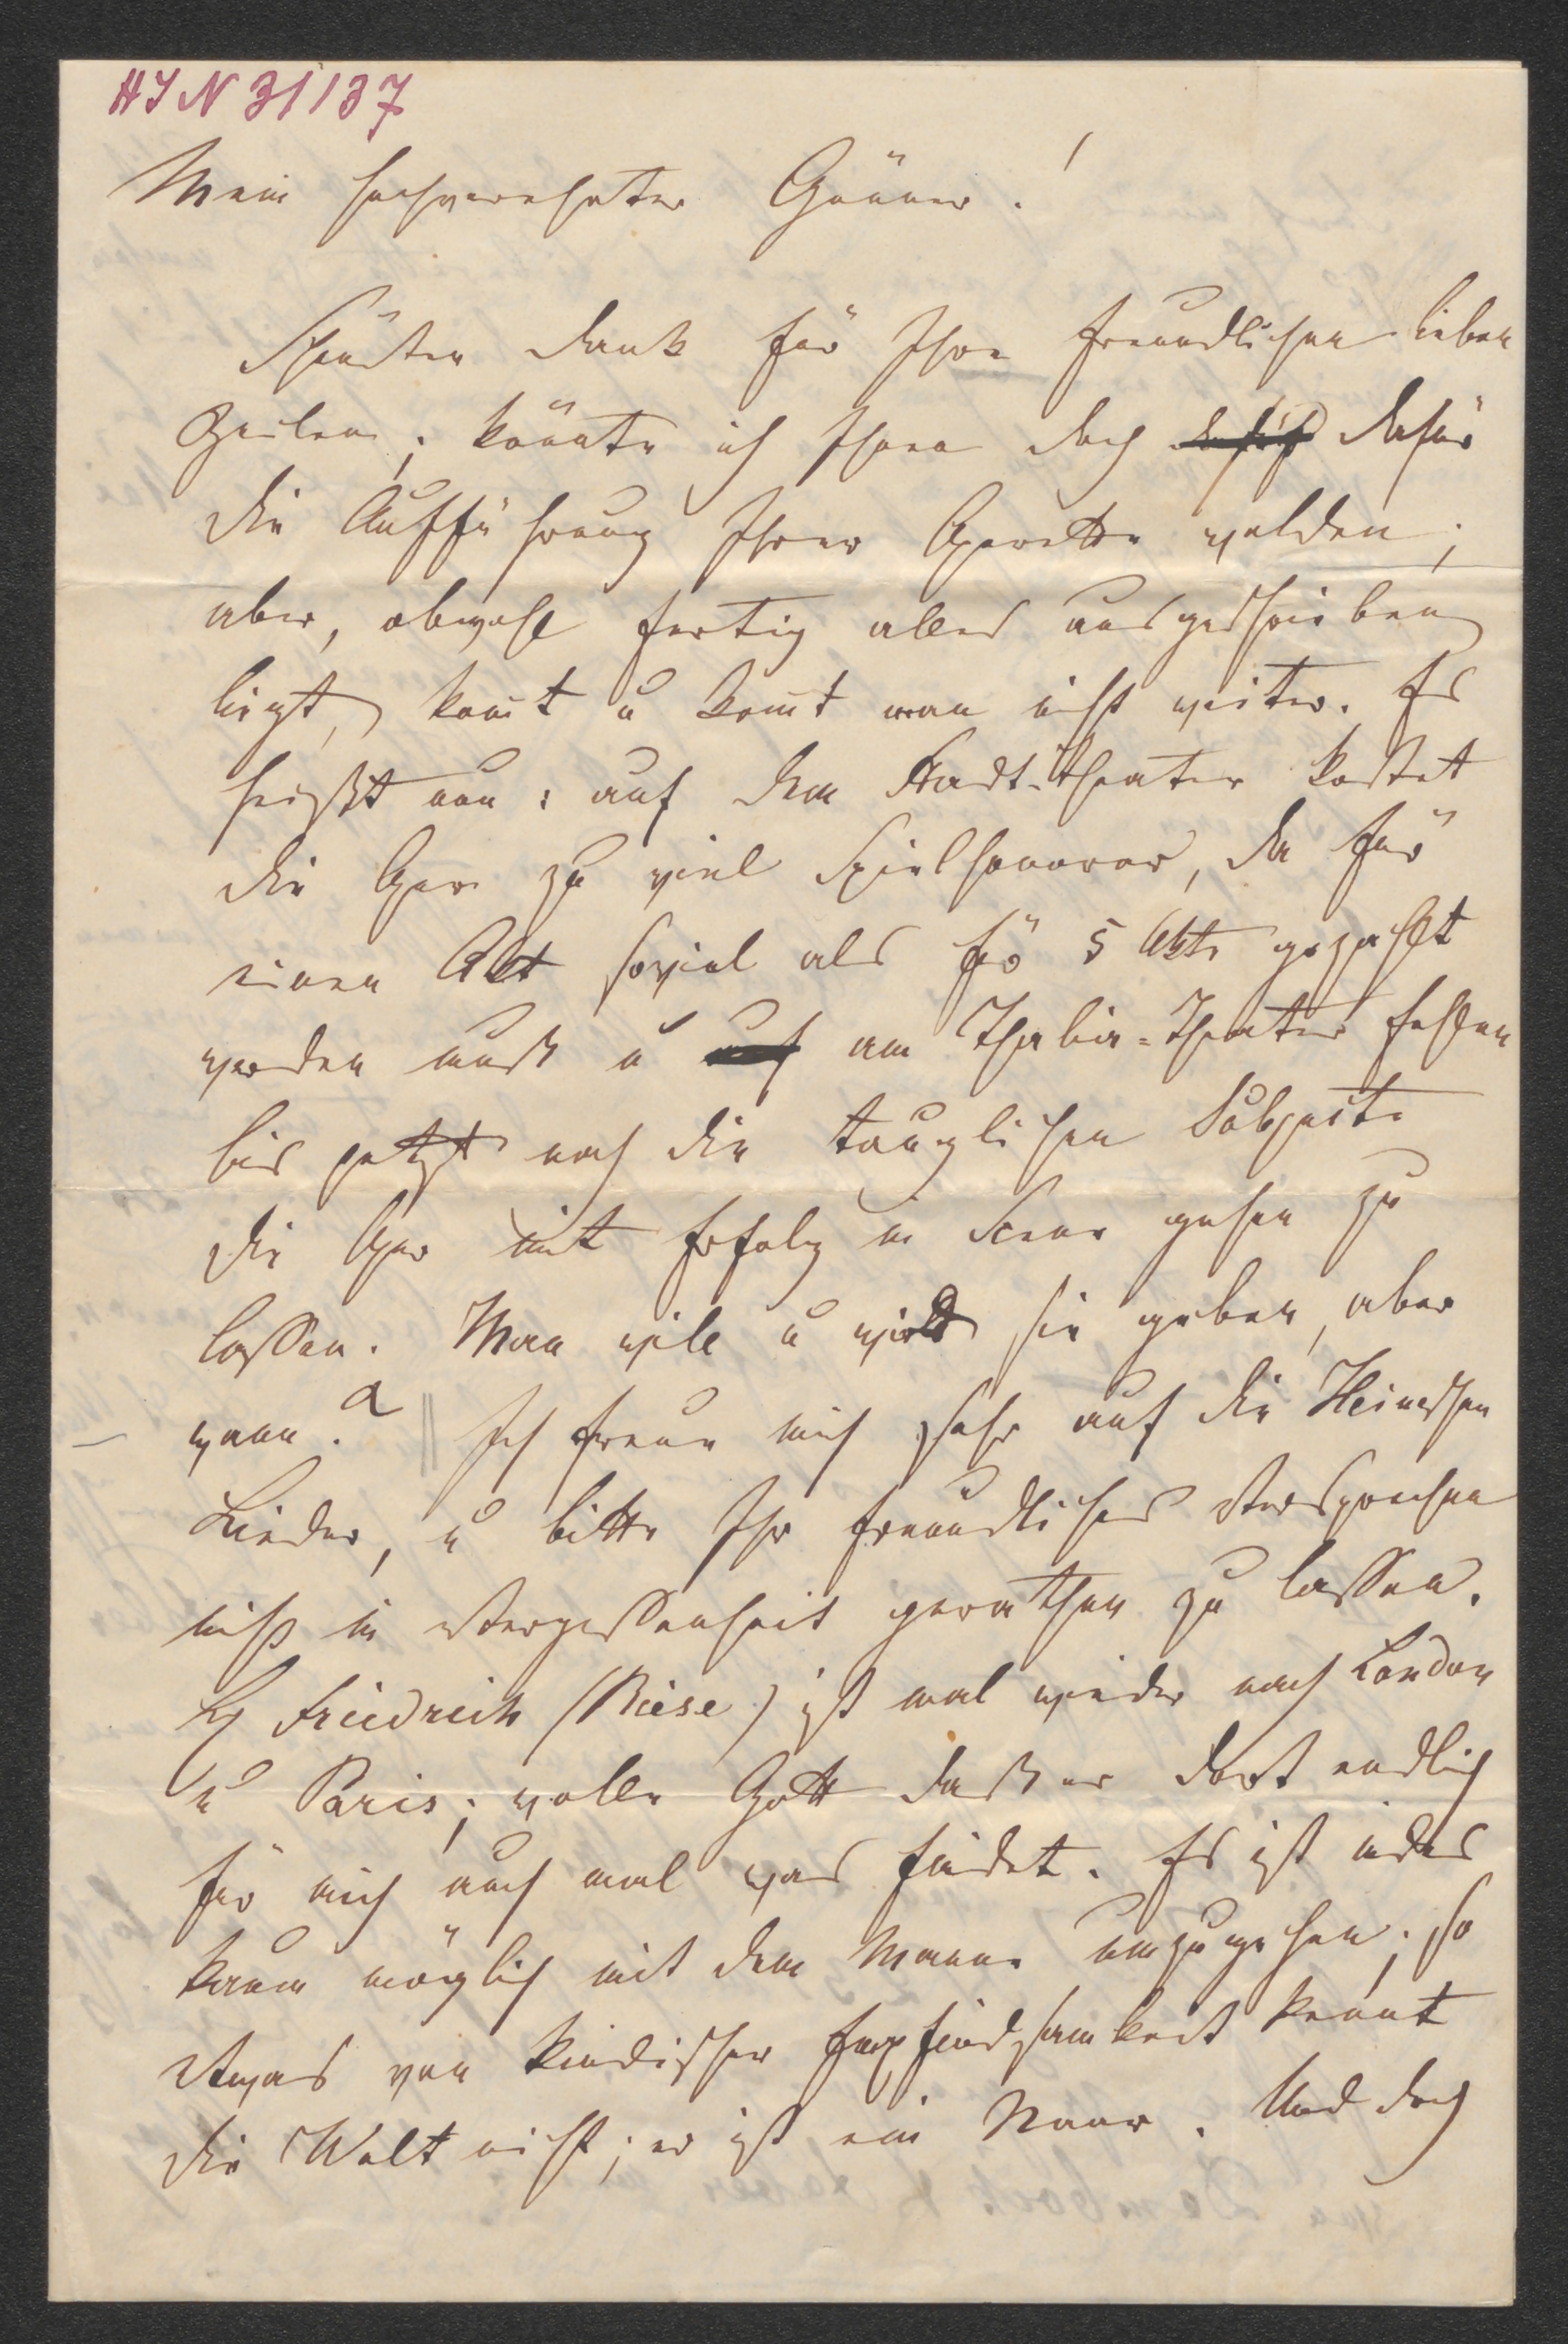 HIN 31137
Mein hochverehrter Gönner!
Spaeten Dank für Ihre freundlichen lieben
Zeilen; könnte ich Ihnen doch dafür
die Aufführung Ihrer Operette melden;
aber, obwohl fertig alles ausgeschrieben
liegt, kom̄t u kom̄t man nicht weiter. Es
heißt nun: auf dem Stadt-Theater kostet
die Oper zu viel Spielhonorar, da für
einen Akt soviel als für 5 Akte gezahlt
werden muß u am Thalia-Theater fehlen
bis jetzt noch die tauglichen Subjecte
die Oper mit Erfolg in Scene gehen zu
lassen. Man will u wird sie geben, aber
wann? Ich freue mich sehr auf die Heineschen
Lieder, u bitte Ihr freundliches Versprechen
nicht in Vergessenheit gerathen zu lassen.
Friedrich (Riese) ist mal wieder nach London
u Paris; wolle Gott daß er dort endlich
für mich auch mal was findet. Es ist indes
kaum möglich mit dem Manne umzugehen; so
etwas von kindischer Empfindsamkeit kennt
die Welt nicht; er ist ein Narr. Und doch